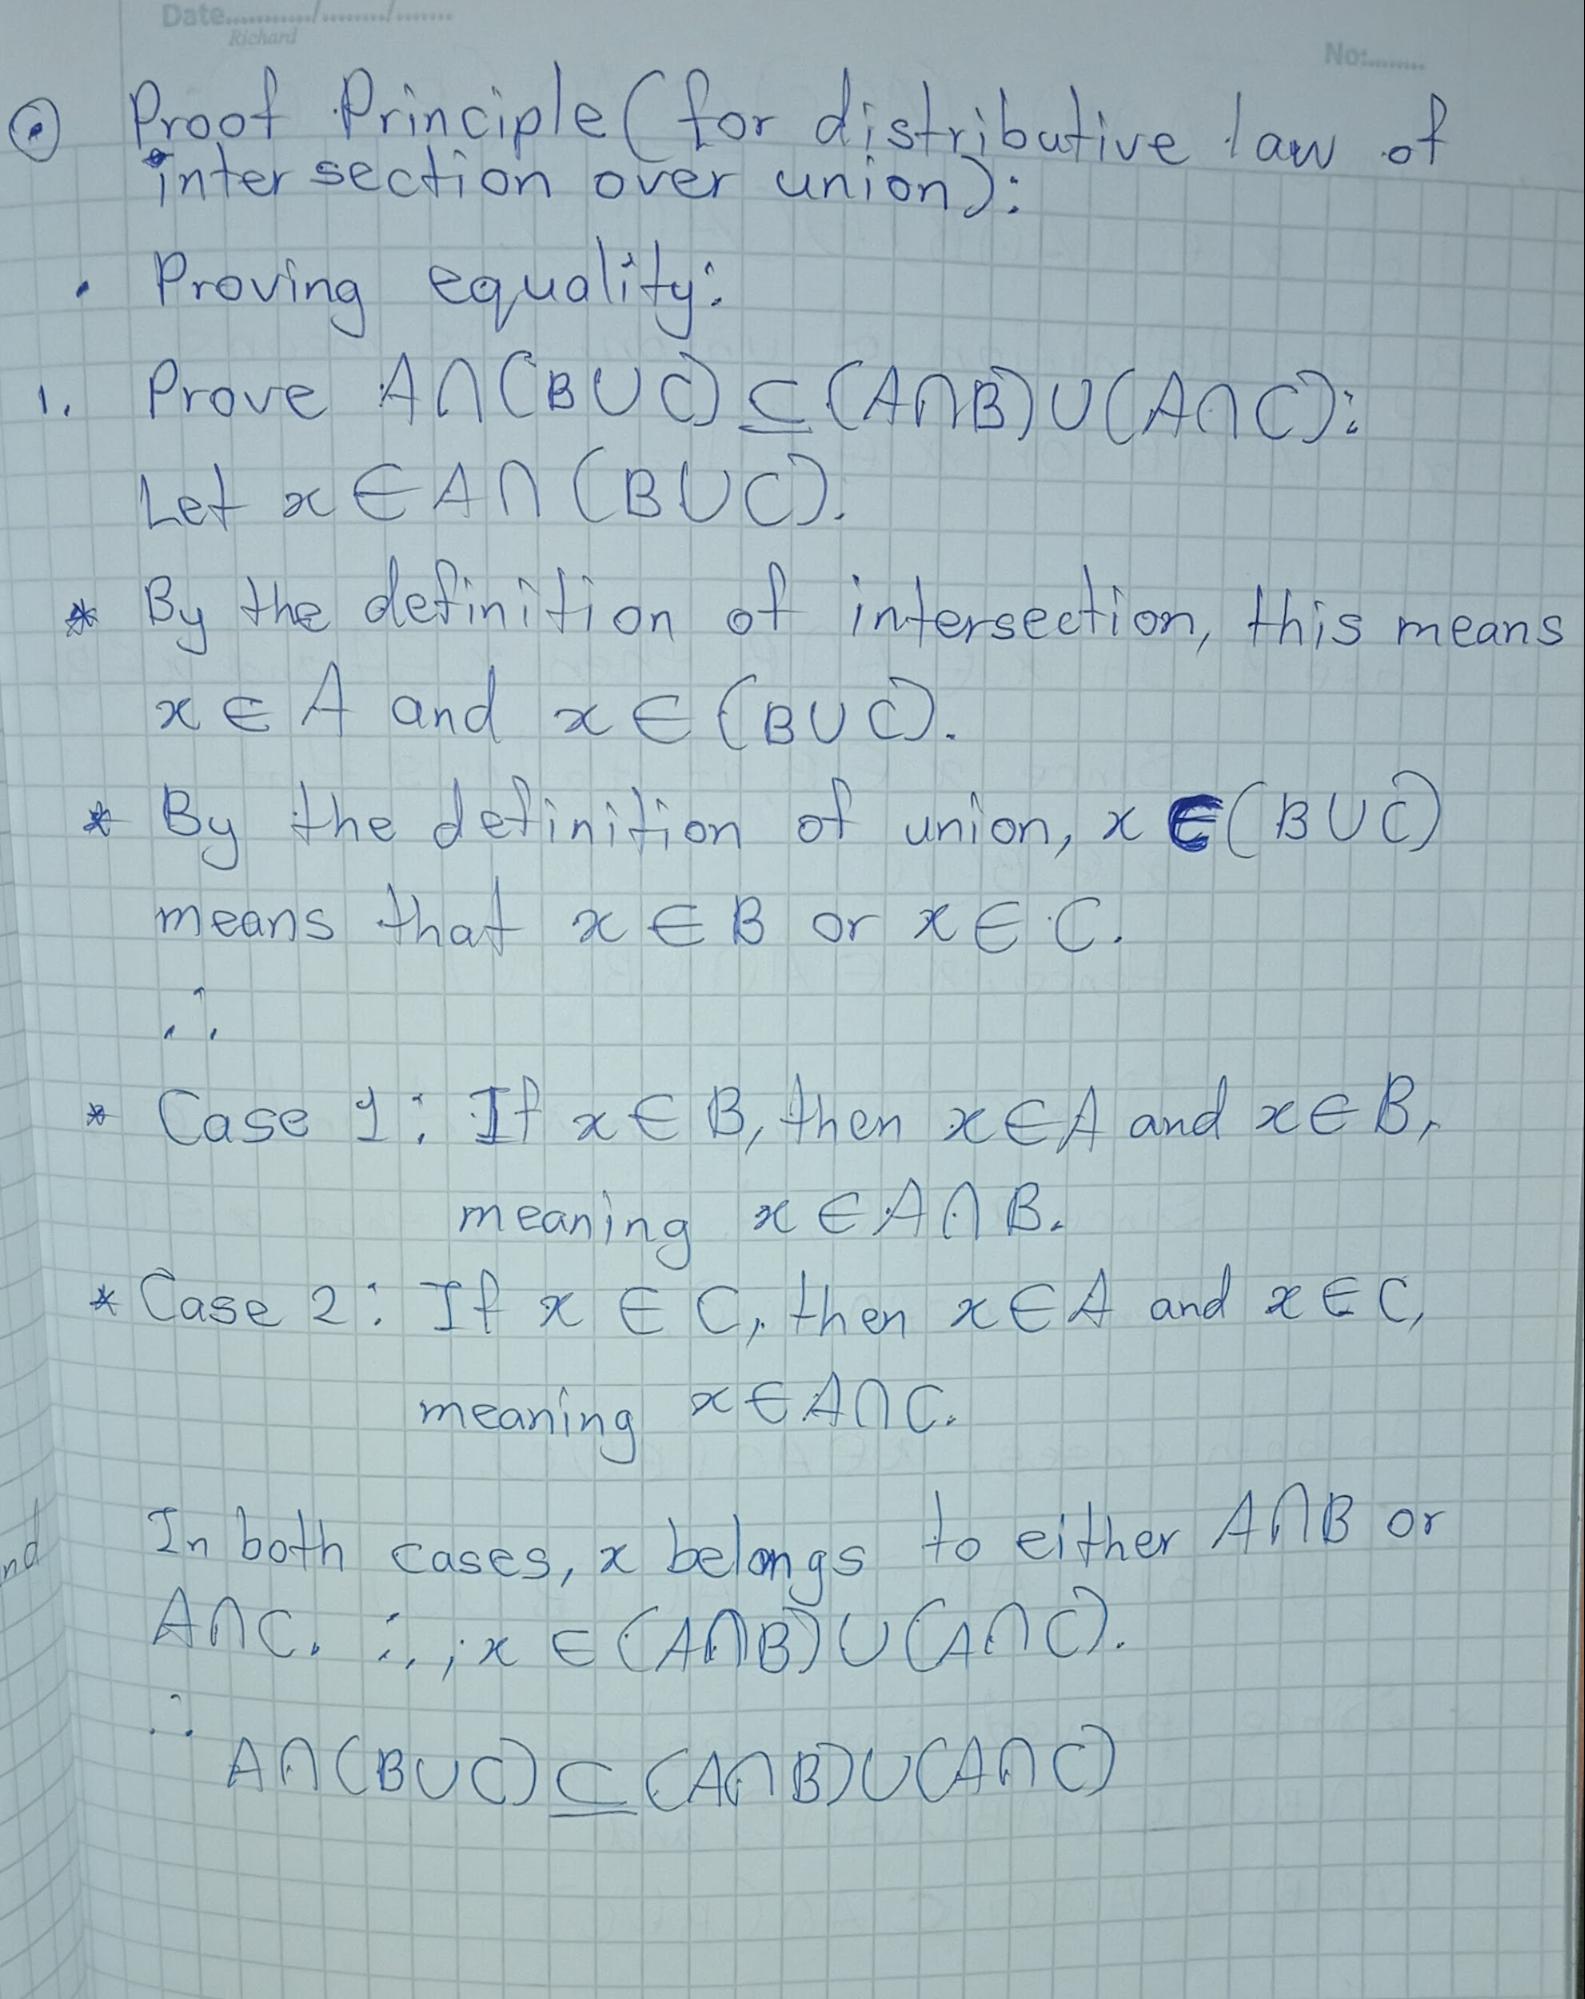 Date............/........./.......
Richard
No:........
Proof Principle (for distributive law of
intersection over union):
. Proving equality:
1. Prove A∩(B∪C)⊆(A∩B)∪(A∩C):
Let x∈A∩(B∪C).
* By the definition of intersection, this means
x∈A and x∈(B∪C).
* By the definition of union, x∈(B∪C)
means that x∈B or x∈C.
∴
* Case 1: If x∈B, then x∈A and x∈B,
meaning x∈A∩B.
* Case 2: If x∈C, then x∈A and x∈C,
meaning x∈A∩C.
In both cases, x belongs to either A∩B or
nd
A∩C. ∴, ; x∈(A∩B)∪(A∩C).
∴
A∩(B∪C)⊆(A∩B)∪(A∩C)